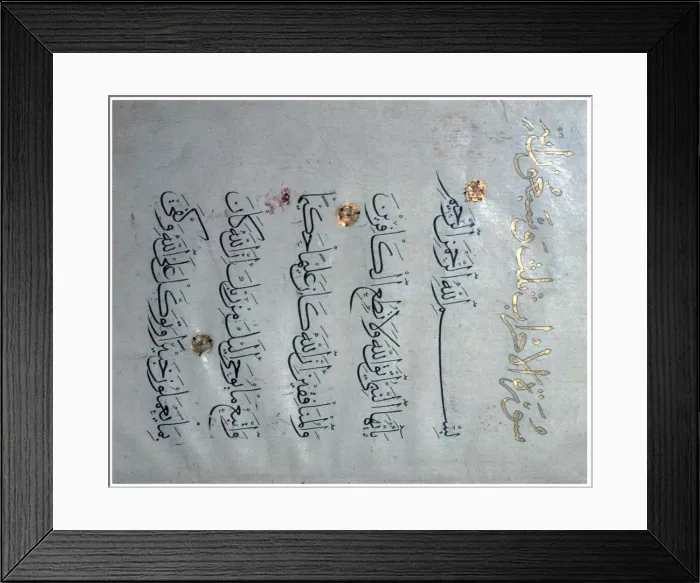 سورة الاحزاب ثلث وسبعون اية
بسم الله الرحمن الرحيم
يايها النبي اتق الله ولا تطع الكافرين
والمنافقين ان الله كان عليما حكيما
واتبع ما يوحى اليك من ربك ان الله كان
بما تعملون خبيرا وتوكل على الله وكفى